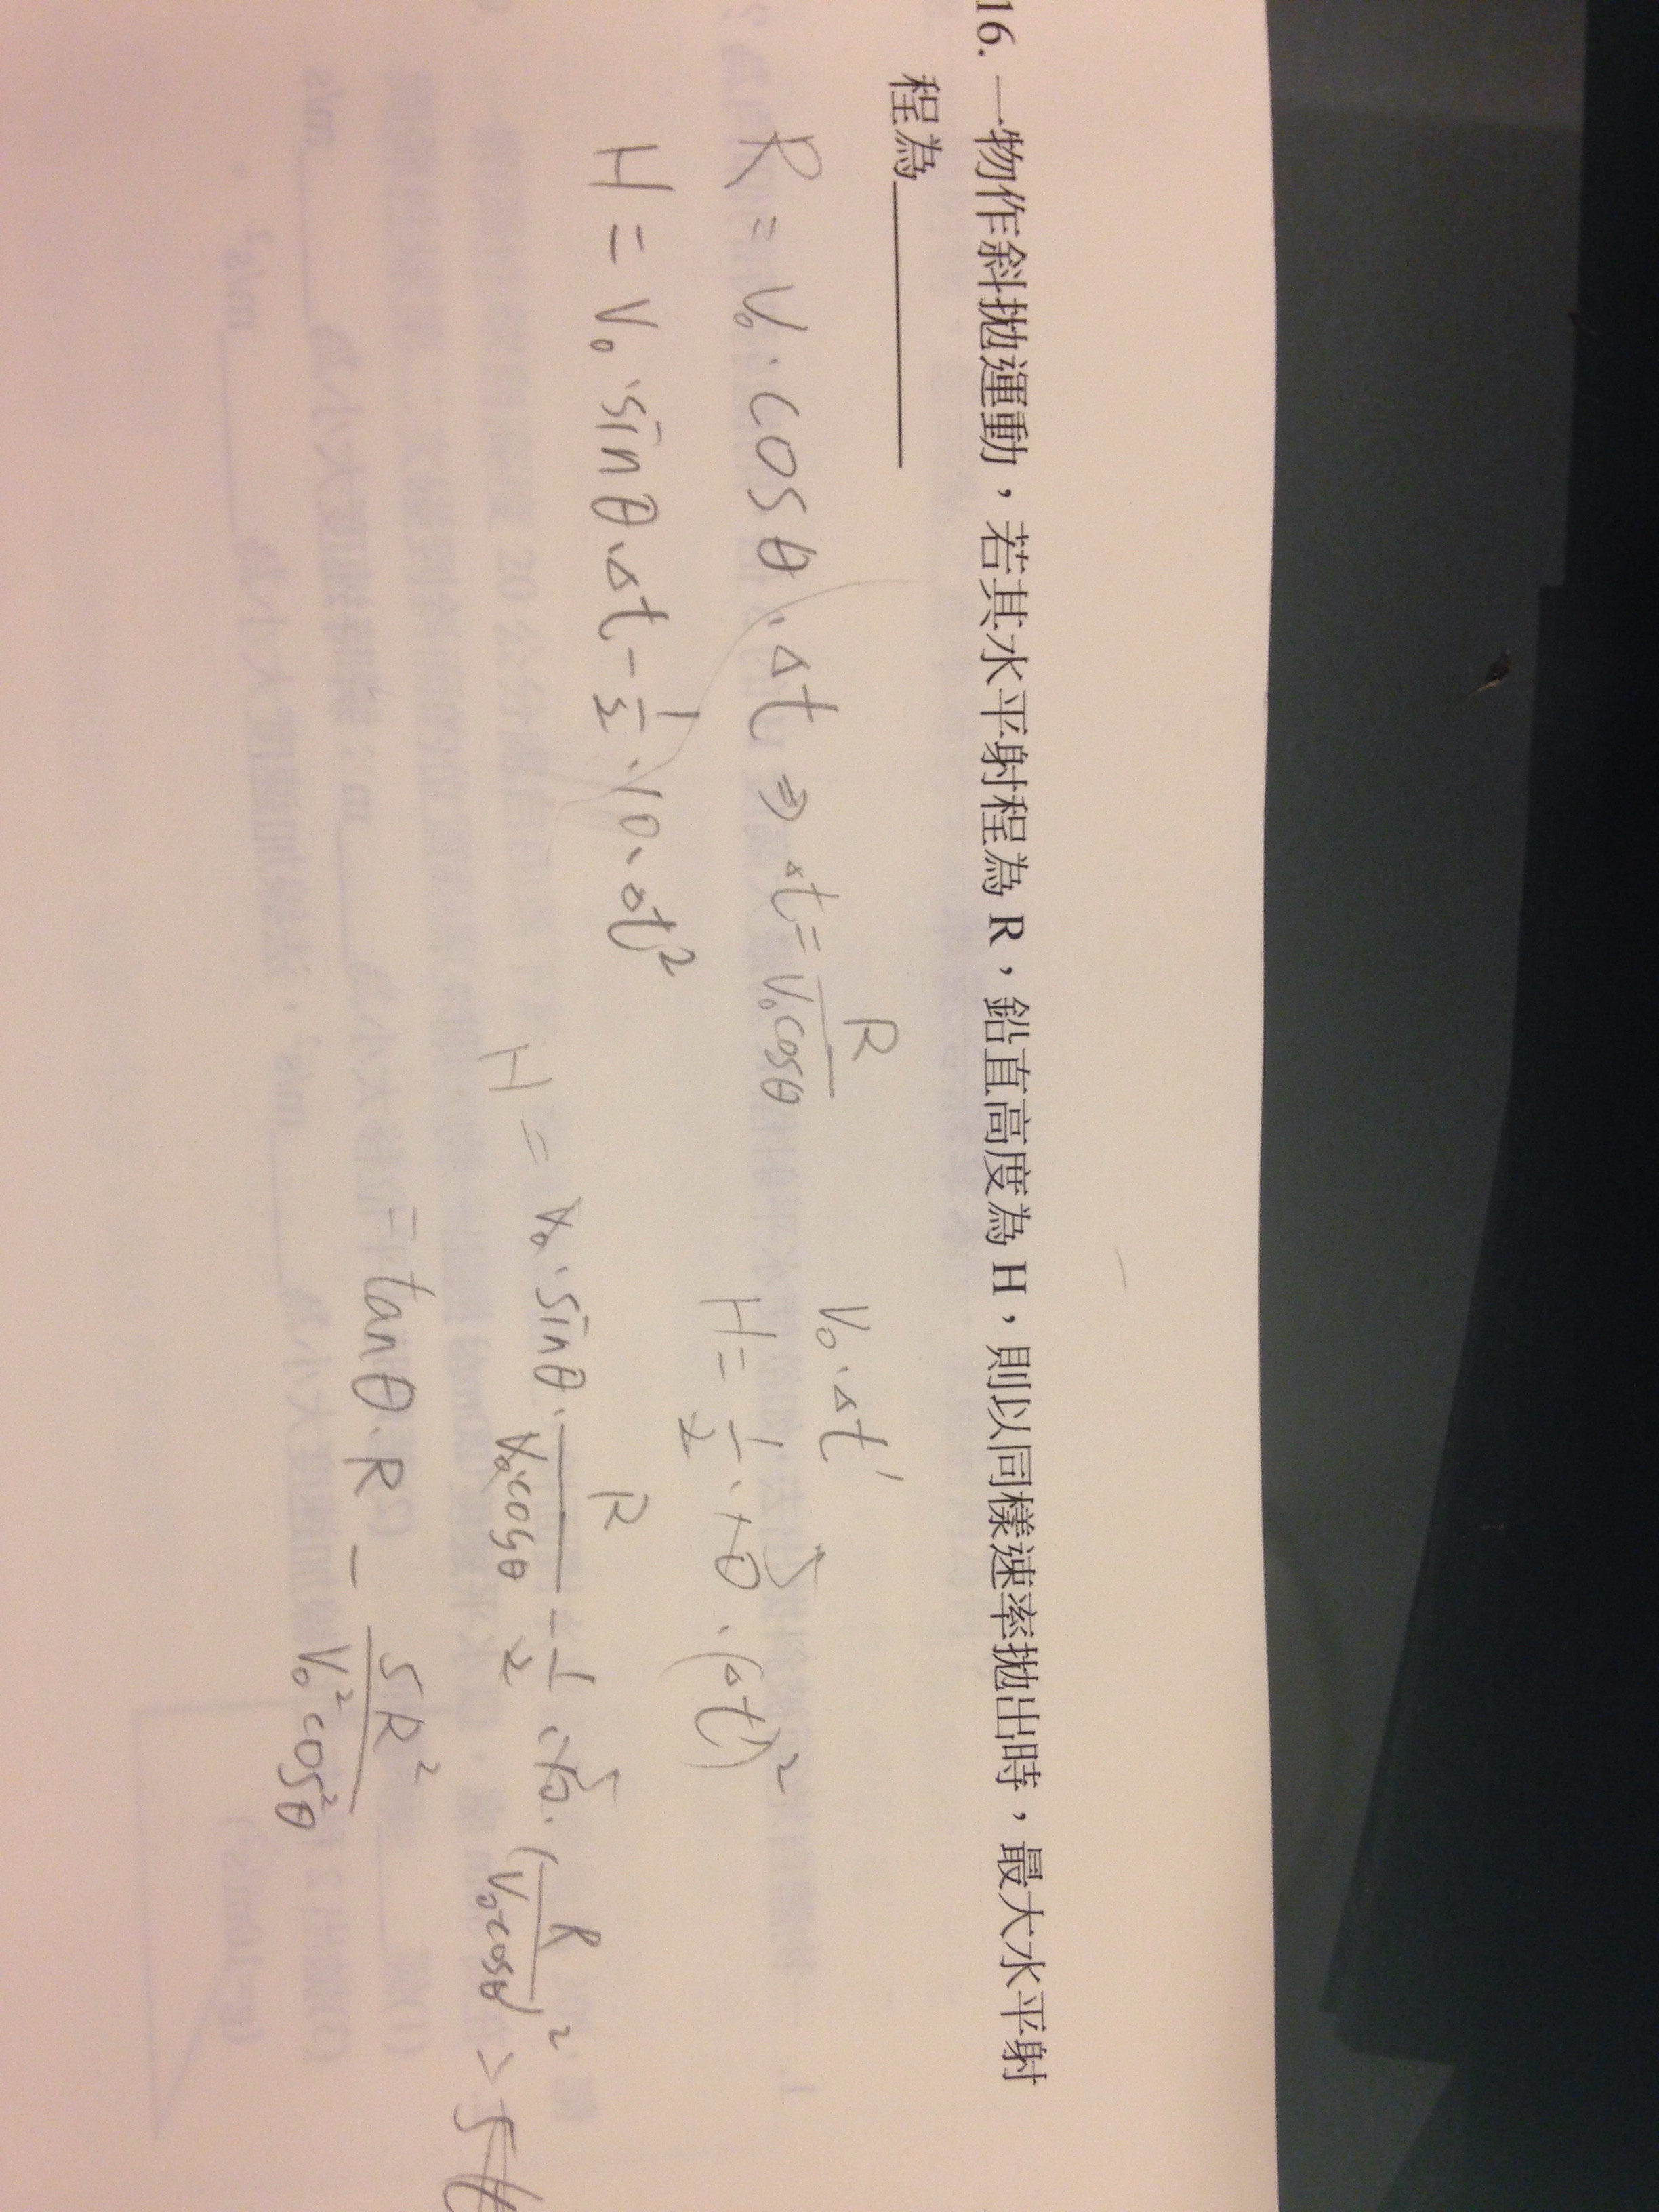 16. 一物作斜拋運動，若其水平射程為 R，鉛直高度為 H，則以同樣速率拋出時，最大水平射
程為
R = V₀·cosθ·Δt ⇒ Δt = R/(V₀cosθ)
H = V₀·sinθ·Δt - 1/2·10·Δt²
V₀·Δt'
H = 1/2·10·(Δt')² 5
H = V₀·sinθ·R/(V₀·cosθ) - 1/2·10·(R/(V₀·cosθ))² 5
= tanθ·R - 5R²/(V₀²cos²θ)